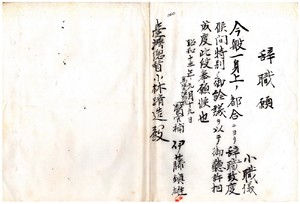 辞職願
小職儀
今般身上ノ都合ニヨリ辞職致度
候間特別ノ御詮議ヲ以テ御聴許相
成度此段奉願候也
昭和十五年九月十九日
伊藤
台湾総督小林躋造殿